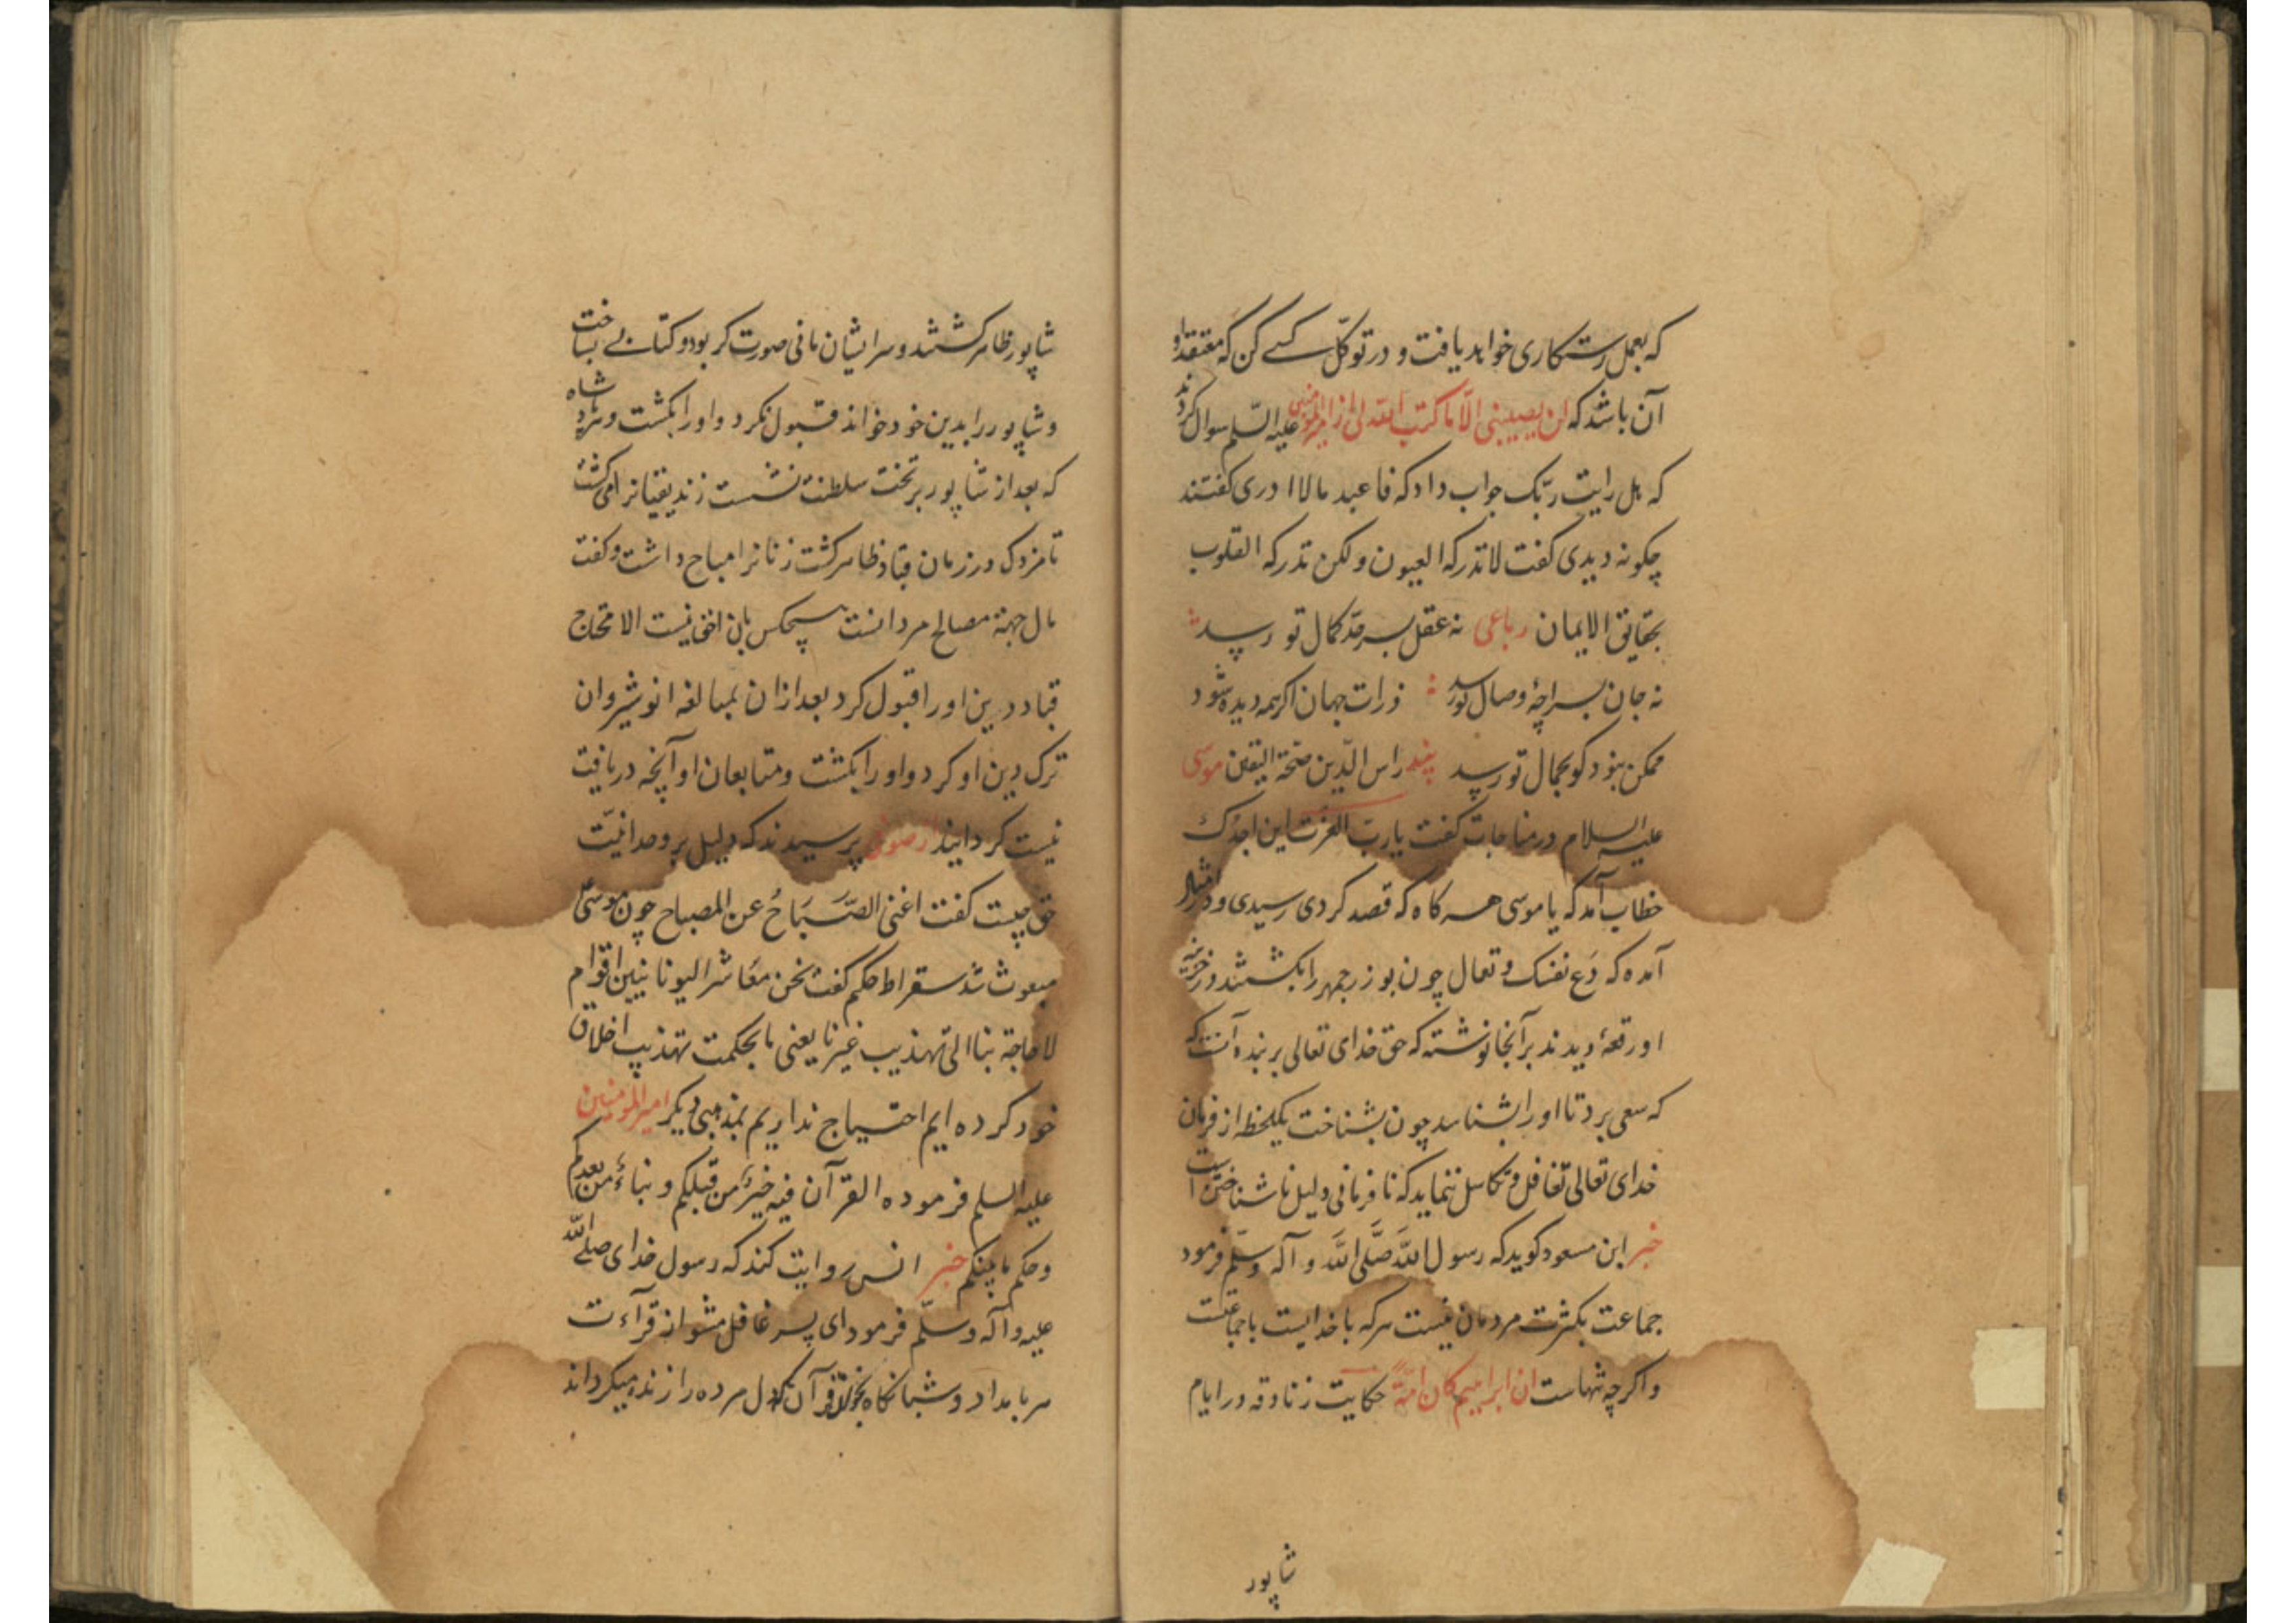 که بعمل رستکاری خواهد یافت و در توکل سعی کن که معتقد او
آن باشد که لن یصیبنی الا ما کتب الله لی از امیرالمومنین علیه السلم سوال کردند
که هل رایت ربک جواب داد که فاعبد مالا ادری کفتند
چکونه دیدی کفت لا تدرکه العیون ولکن تدرکه القلوب
بحقایق الایمان رباعی نه عقل بسرحد کمال تو رسد
نه جان بسراچهٔ وصال تو رسد ذرات جهان اکر همه دیده شود
ممکن نبود کو بجمال تو رسد پند راس الدین صحة الیقین موسی
علیه السلام در مناجات کفت یا رب العزت این اجدک
خطاب آمد که یا موسی هرکاه که قصد کردی رسیدی و در
آمده که دَع نفسک و تعال چون بوزرجمهر را بکشتند در خزینه
او رقعهٔ دیدند بر آنجا نوشته که حق خدای تعالی بر بنده آنست که
که سعی برد تا او را بشناسد چون بشناخت یکلحظه از فرمان
خدای تعالی تغافل و تکاسل ننماید که نافرمانی دلیل ناشناختن است
خبر ابن مسعود کوید که رسول الله صَلَّی الله و آله وسلّم فرمود
جماعت بکثرت مردمان نیست هرکه با خدایست با جماعتست
و اکرچه تنهاست ان ابراهیم کان امّةً حکایت زنادقه در ایام
شاپور
شاپور ظاهر کشتند و سر ایشان مانی صورت کر بود و کتابی بساخت
و شاپور را بدین خود خواند قبول نکرد و او را بکشت و هر شاه
که بعد از شاپور بر تخت سلطنت نشست زندیقیانرا می کشت
تا مزدک در زمان قباد ظاهر کشت زنانرا مباح داشت و کفت
مال جهة مصالح مردانست هیچکس بان احق نیست الا محتاج
قباد دین او را قبول کرد بعد از ان بمبالغه انوشیروان
ترک دین او کرد و او را بکشت و متابعان او آنچه دریافت
نیست کردانید از صوفی پرسیدند که دلیل بر وحدانیّت
حق چیست کفت اغنی الصَّبَاحُ عن المصباح چون موسی
مبعوث شد سقراط حکیم کفت نحن معاشر الیونانیین اقوام
لا حاجة بنا الی تهذیب غیرنا یعنی ما بحکمت تهذیب اخلاق
خود کرده ایم احتیاج نداریم بمذهبی دیکر امیر المومنین
علیه السلم فرموده القرآن فیه خبرُ من قبلکم و نباءُ من بعدکم
و حکم ما بینکم خبر انس روایت کند که رسول خدای صلی الله
علیه و آله وسلّم فرمود ای پسر غافل مشو از قرآءت
هر بامداد و شبانکاه قرآن که دل مرده را زنده میکرداند